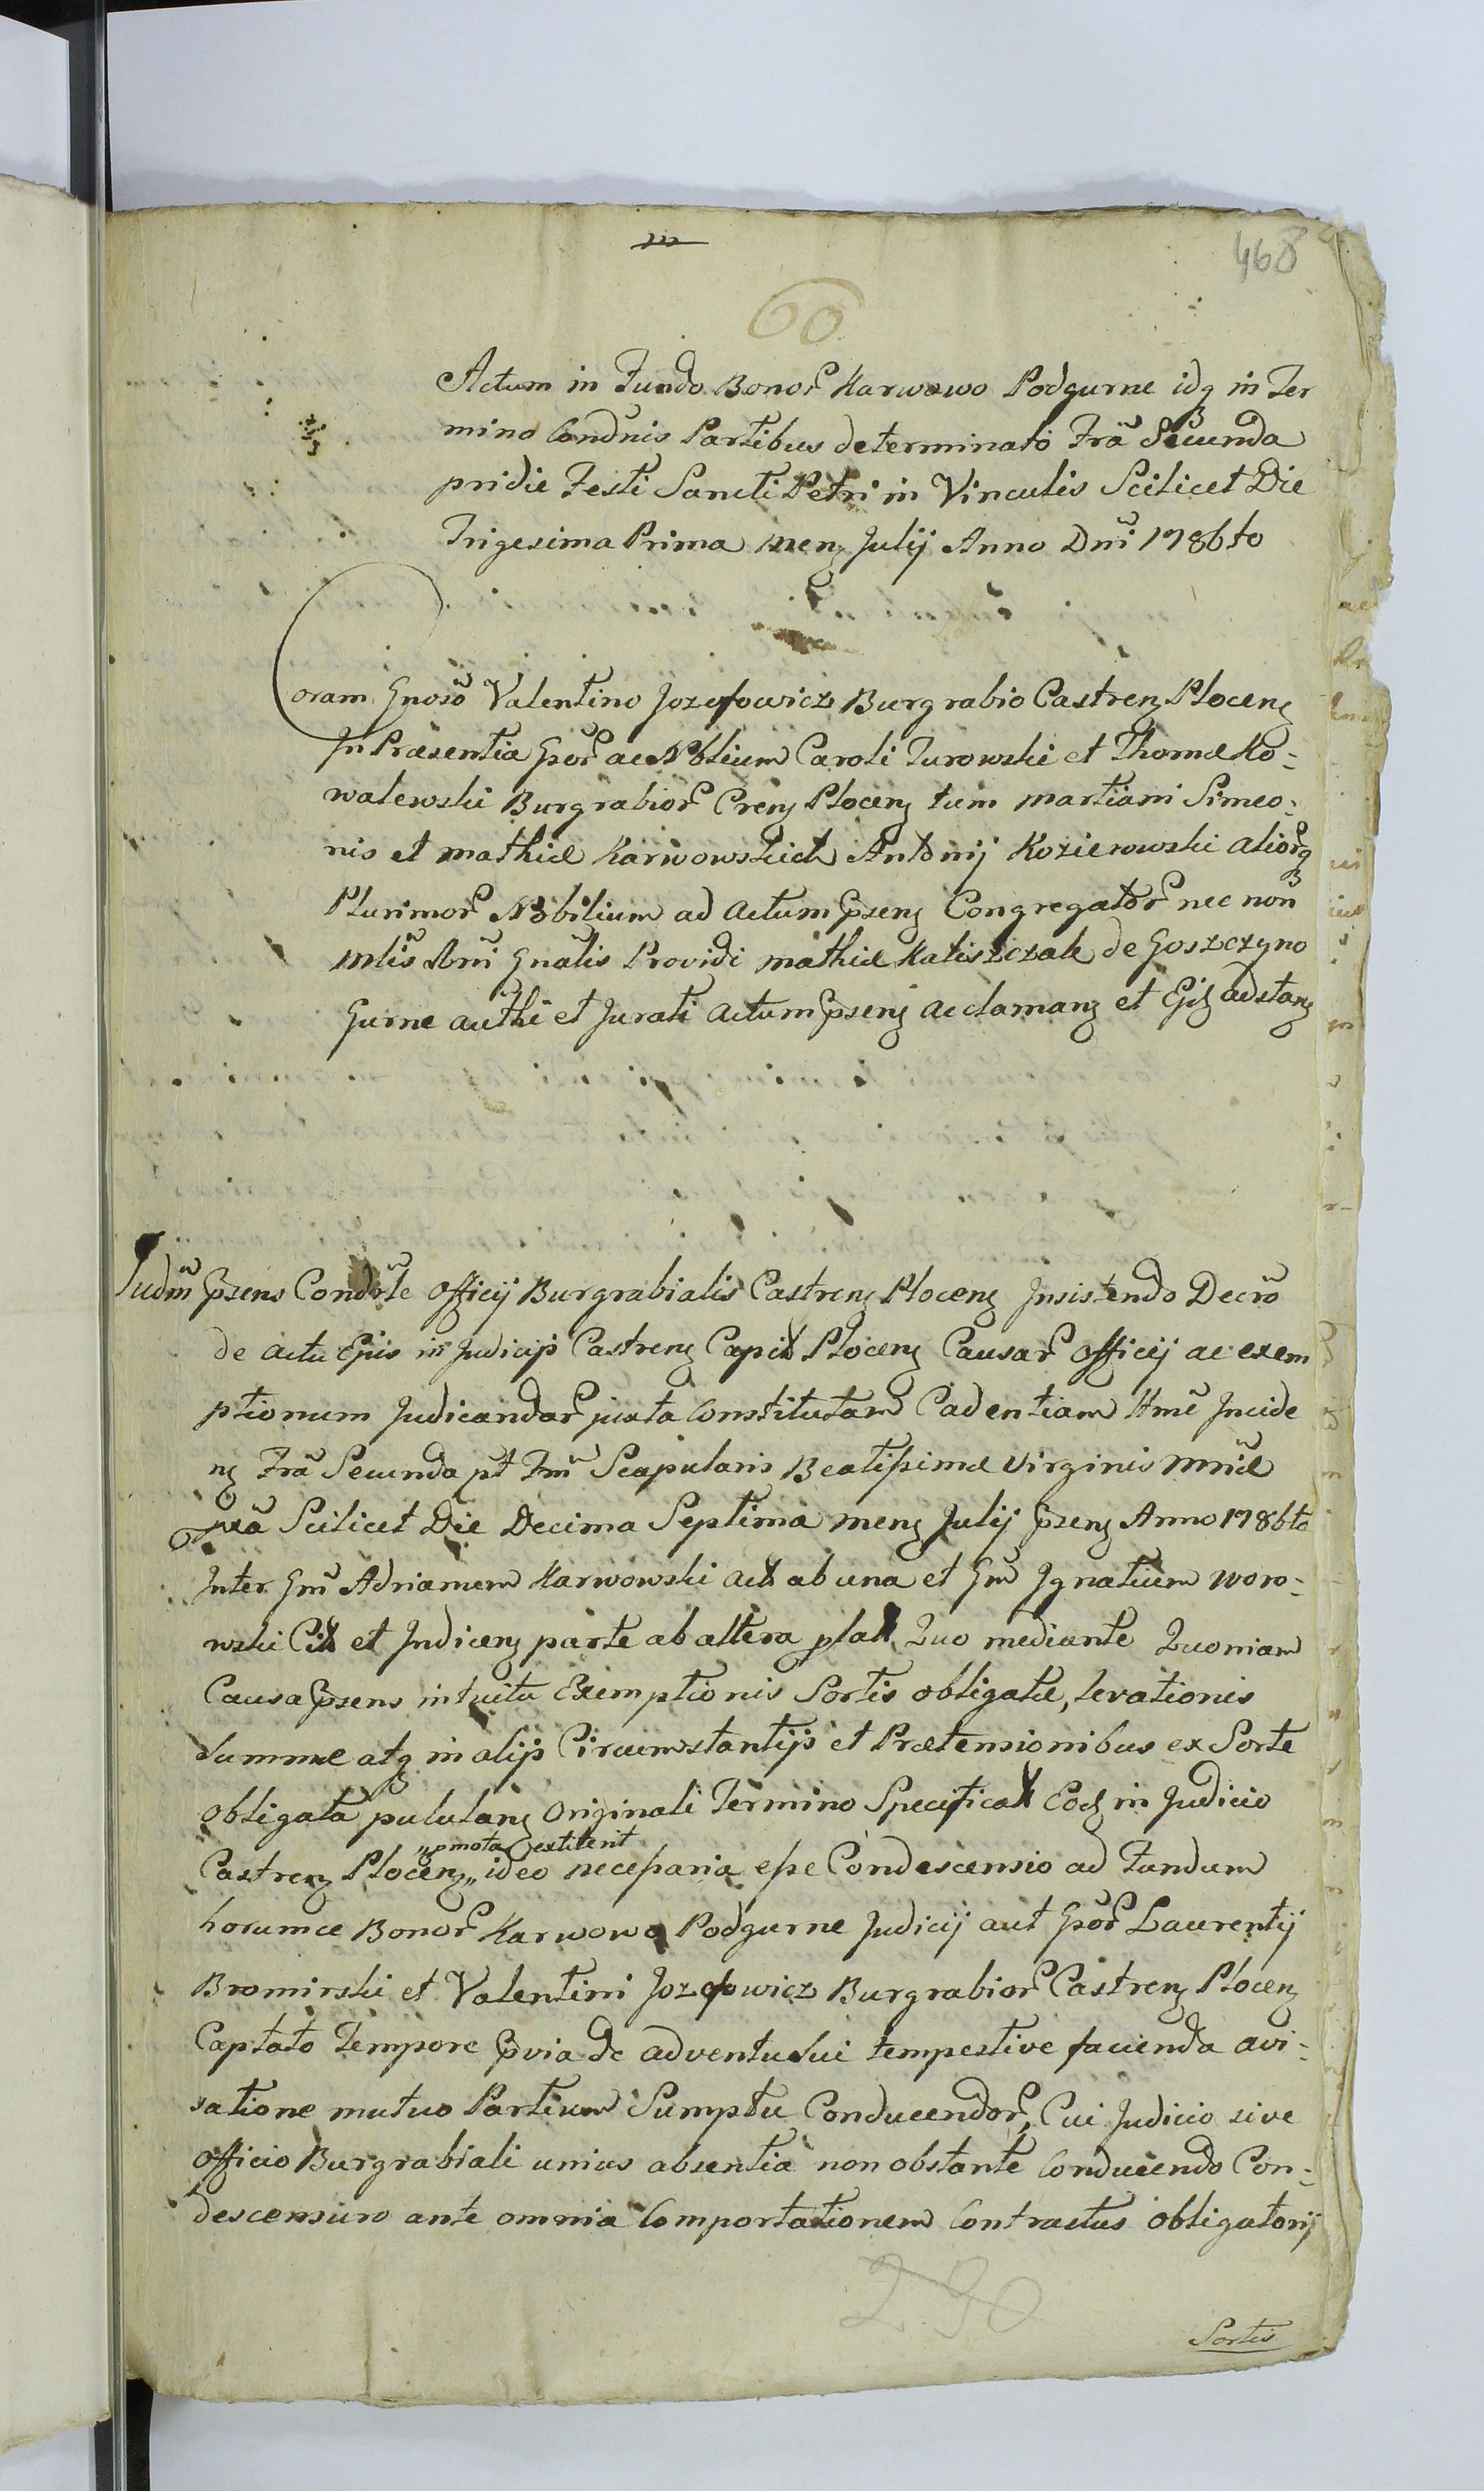 468
60
Actum in Fundo Bonor Karwowo Podgurne idq in Ter
mino Condnis Partibus determinato Fra Secunda
pridie Festi Sancti Petri in Vinculis Scilicet Die
Trigesima Prima mens Julij Anno Dni 1786to
Coram Gnoso Valentino Jozefowicz Burgrabio Castrens Plocens
In Praesentia Gsor ac Nblium Caroli Turowski et Thomae Ko=
walewski Burgrabior Crens Plocens tum Martiani Simeo=
nis et Mathiae Karwowskich Antonij Kozierowski aliorq
Plurimor Nobilium ad Actum Pzens Congregator nec non
Mlis Rni Gnalis Providi Mathiae Kaliszczak de Goszczyno
Gurne authi et Jurati Actum Pzens acclamans et Ejd adstans
Judm Pzens Condsle Officij Burgrabialis Castrens Plocens Insistendo Decro
de actu Ejus in Judicijs Castrens Capit Plocens Causar Officij ac exem
ptionum Judicandar juxta Constitutam Cadentiam Hme Incide
ns Fra Secunda pt Fm Scapularis Beatissimae Virginis Mriae
pxa Scilicet Die Decima Septima mens Julij Pzens Anno 1786to
Inter Gm Adrianum Karwowski act ab una et Gm Ignatium Woro=
wski Cit et Indicens parte ab altera plat Quo mediante Quoniam
Causa Pzens intuitu Exemptionis Sortis obligatae, levationis
Summae atq in alijs Circumstantijs et Praetensionibus ex Sorte
obligata pululans Originali Termino Specificat Eod in Judicio
"pmota extiterit
Castrens Plocens" ideo necessaria esse Condescensio ad Fundum
horumce Bonor Karwowo Podgurne Judicij aut Gsor Laurentij
Bromirski et Valentini Jozefowicz Burgrabior Castrens Plocens
Captato Tempore Pvia de adventu Sui tempestive facienda avi=
satione mutuo Partium Sumptu Conducendor, Cui Judicio sive
Officio Burgrabiali unius absentia non obstante Conducendo Con=
descensuro ante omnia Comportationem Contractus obligatorij
290
Sortis